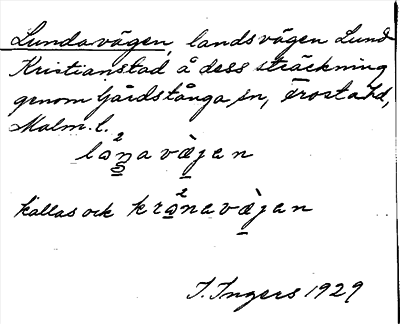 Lundavägen, landsvägen Lund
Kristianstad å dess sträckning
genom Gårdstånga sn, Frosta hd,
Malm. l.
lo̲n̲a væ̲̀jan
kallas ock kro̲na væ̲̀jan
I. Ingers 1929